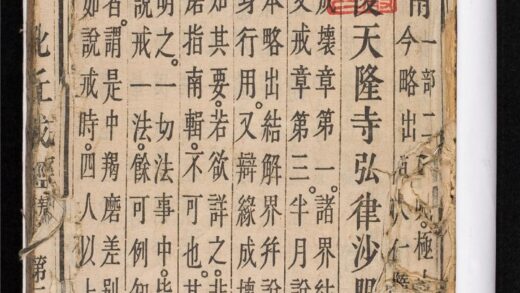 一部二
今略出
天隆寺弘律沙
壞章第一。諸界結
戒章第三半月說
本略出結解界幷說
身行用。又辯緣成
其要。若欲詳之。非
指南輯。不可也。其
明之。一切法事中。
說戒一法。餘可例
者。謂是中羯磨差別
如說戒時。四人以上
丘戒經
第